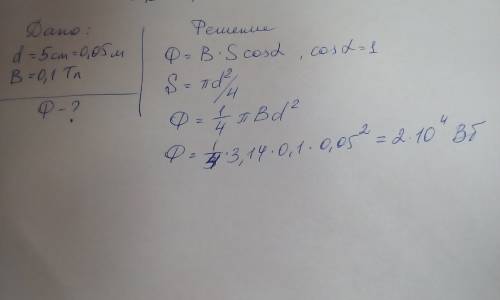 Дано:
d = 5 cm = 0,05 м
B = 0,1 Тл
Ф - ?
Решение
Ф = B · S cosα , cosα = 1
S = πd²/4
Ф = 1/4 π B d²
Ф = 1/4 · 3,14 · 0,1 · 0,05² = 2 · 10⁴ Вб